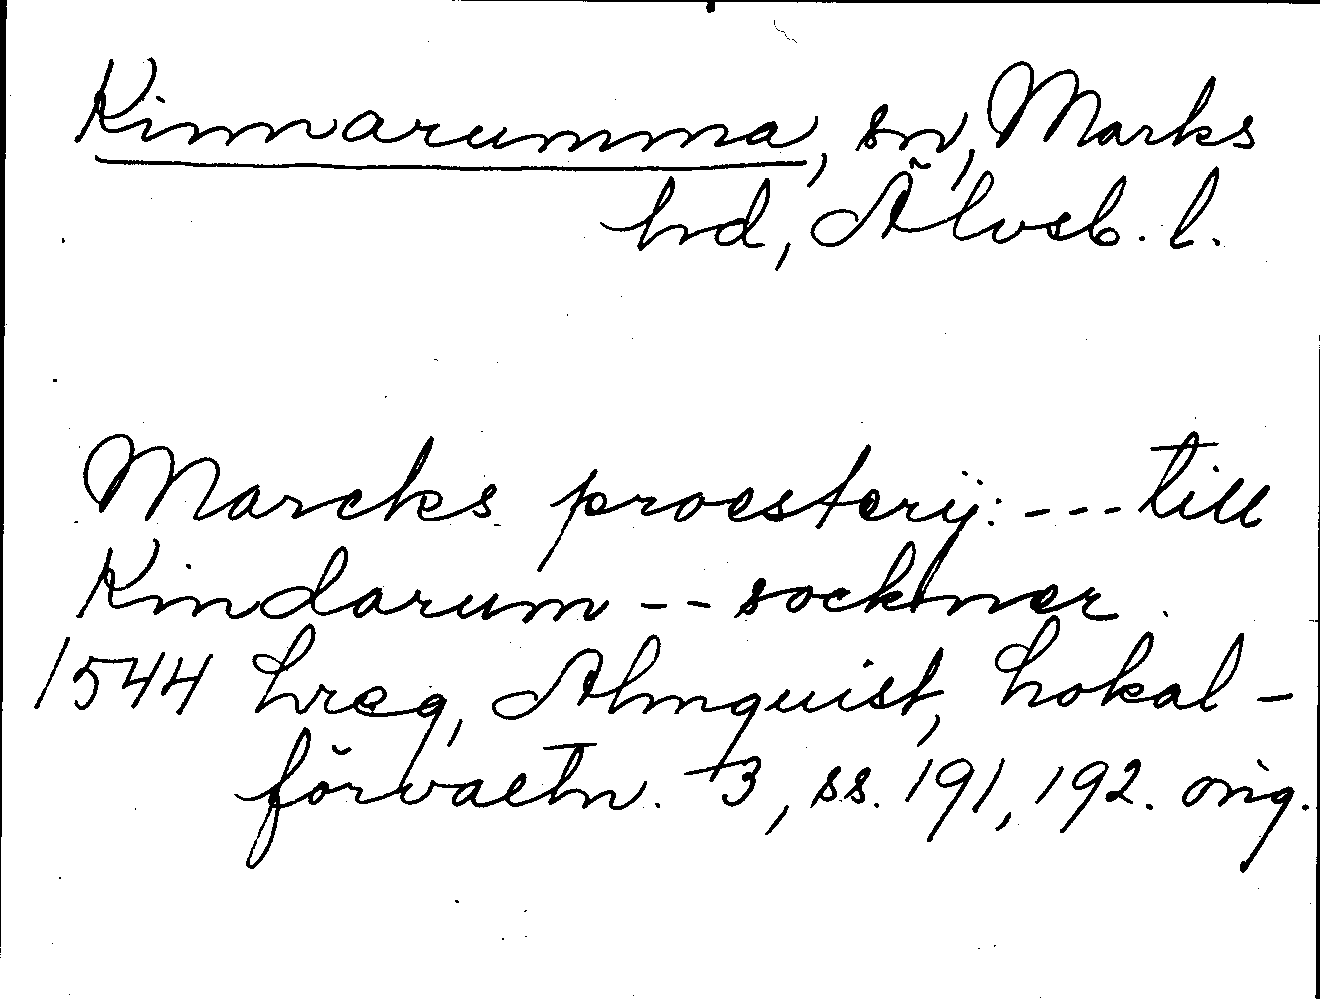 Kinnarumma, sn, Marks
hd, Älvsb. l.
Marcks proesterij: --- till
Kindarum -- sockner.
1544 hreg, Almquist, Lokal-
förvaltn. 3, ss. 191, 192. orig.